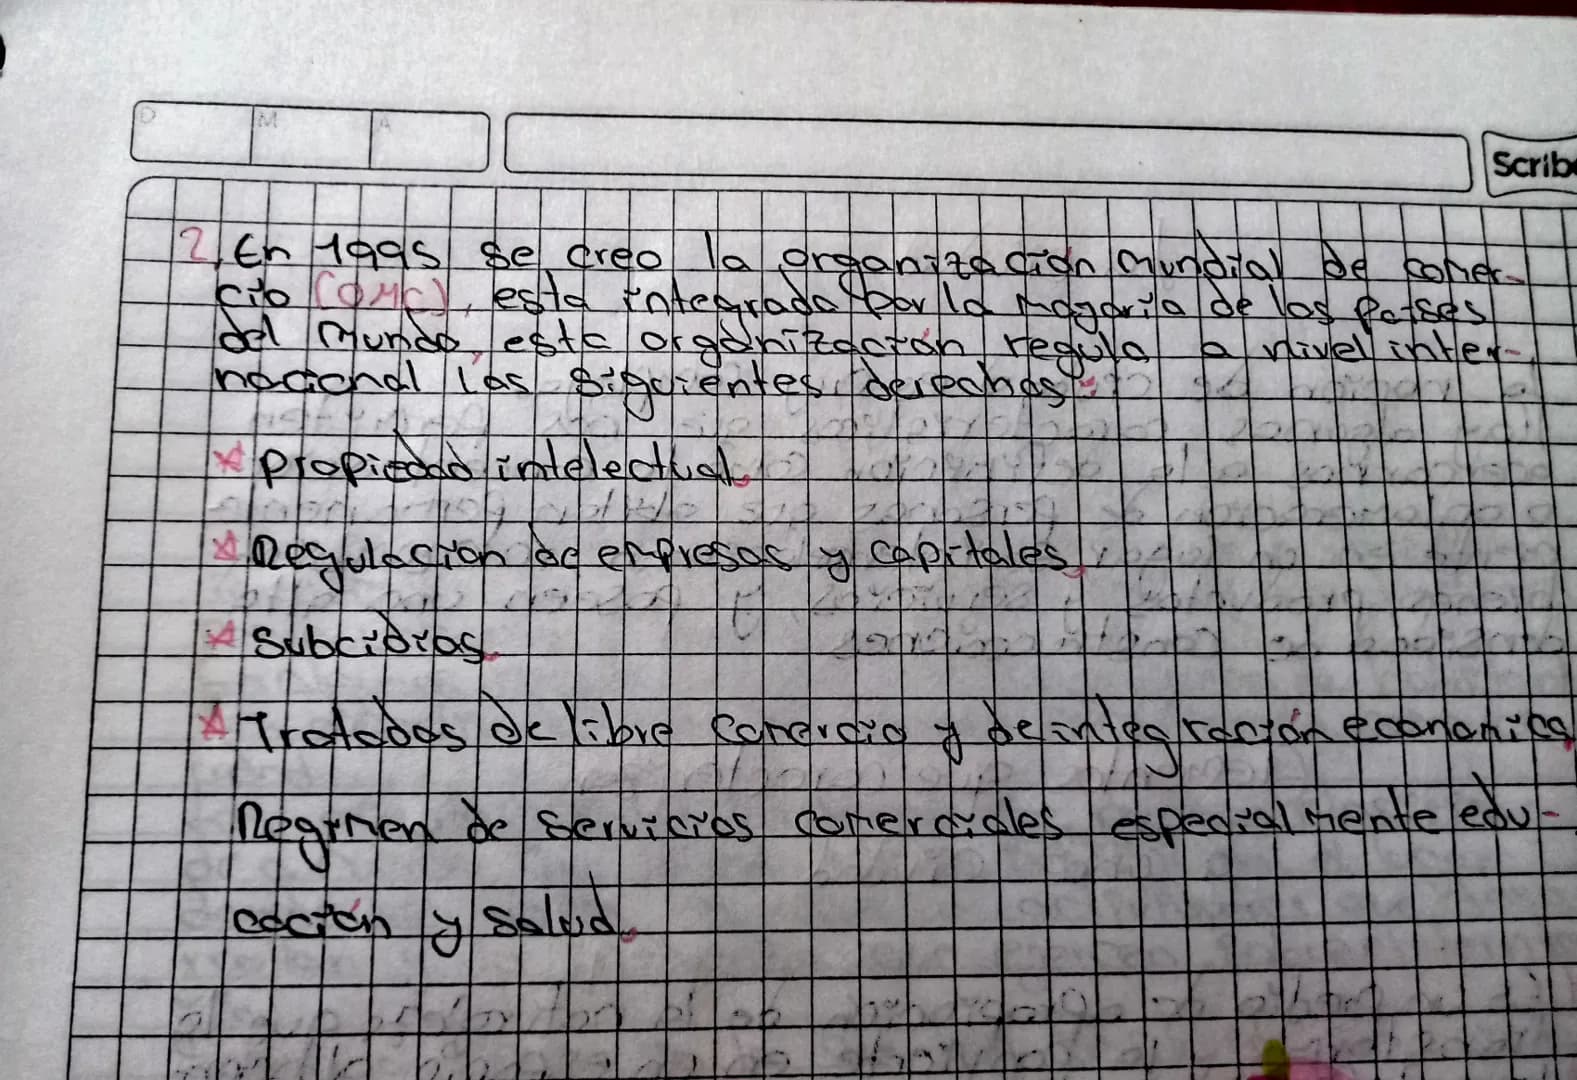 D M A
Scribe
2, En 1995 se creo la organización Mundial de comer-
cio (OMC), esta integrada por la mayoria de los paises
del mundo, esta organización regula a nivel inter-
nacional los siguientes derechos:
* propiedad intelectual.
* Regulacion de empresas y capitales,
* Subcidios.
* Tratados de libre comercio y de integración economica
Regimen de servicios comerciales especialmente edu-
cación y salud.